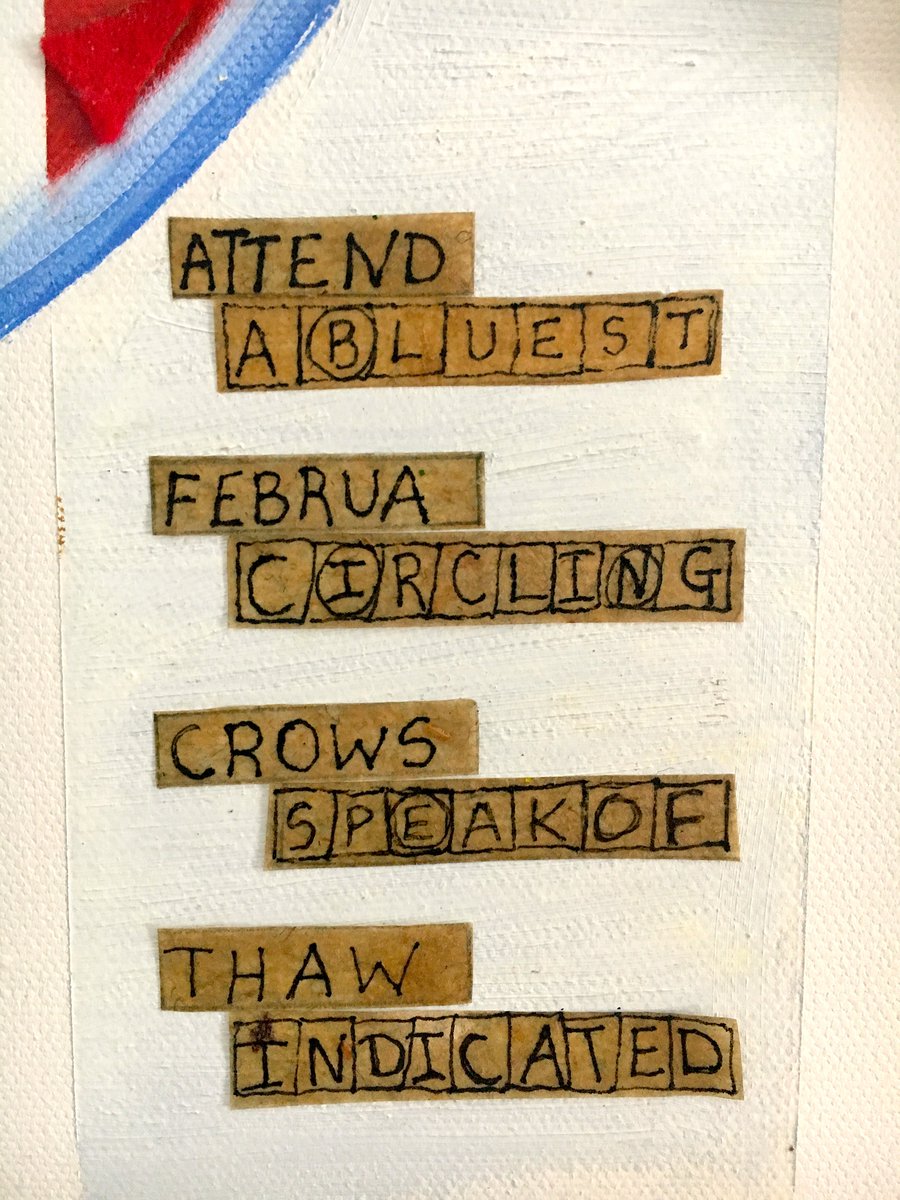 ATTEND
ABLUEST
FEBRUA
CIRCLING
CROWS
SPEAKOF
THAW
INDICATED